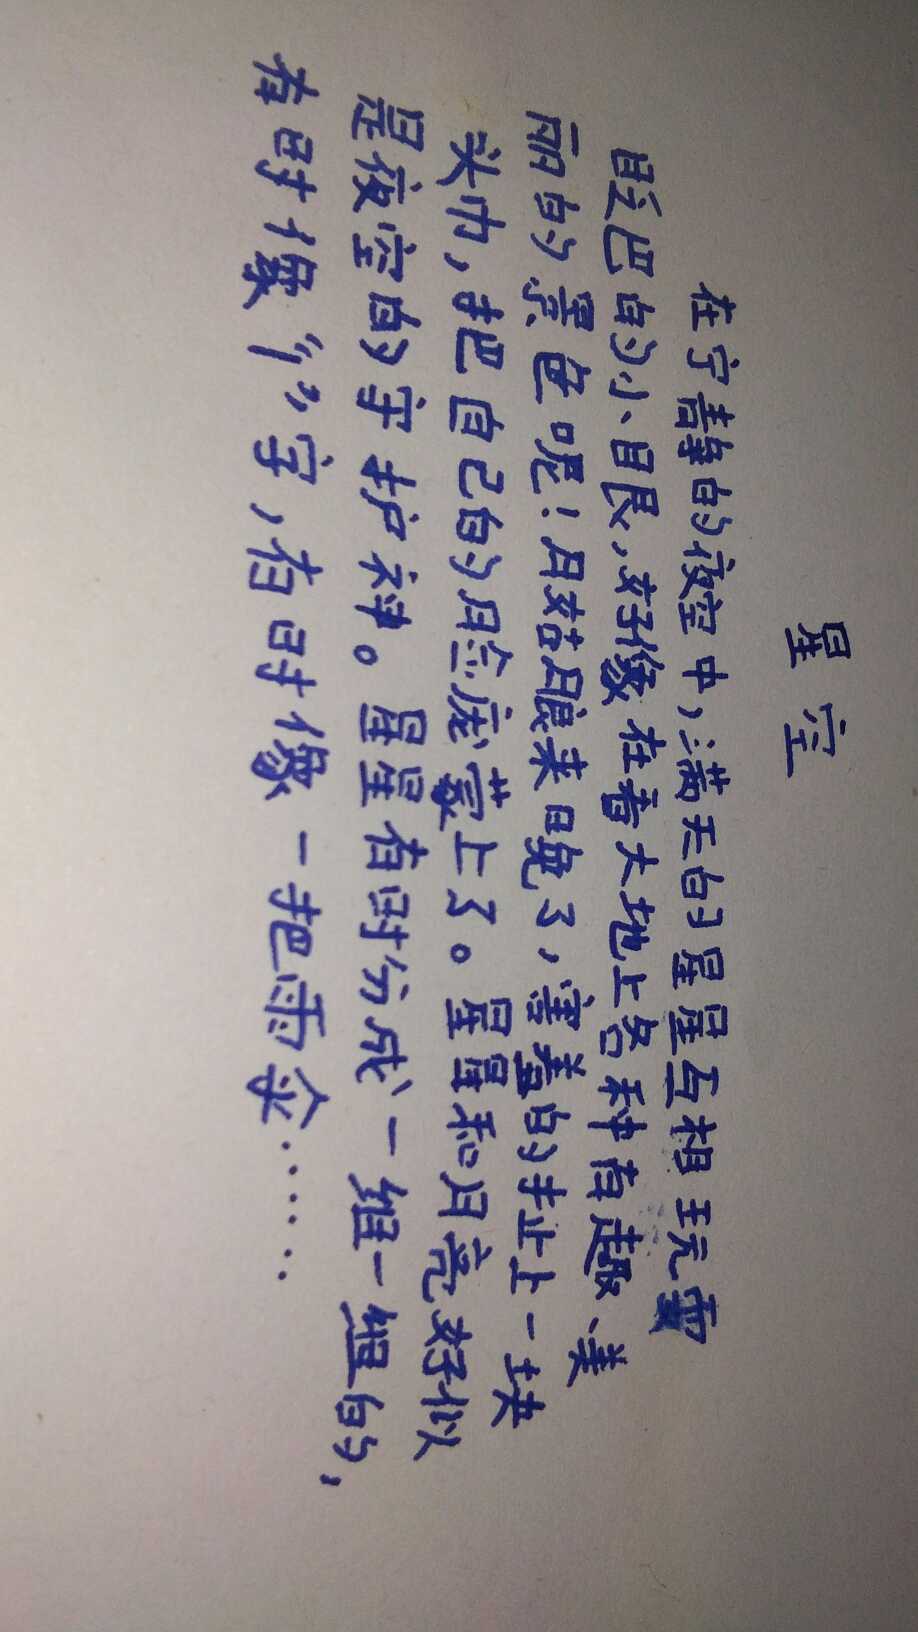 星空
在宁静的夜空中,满天的星星互相玩耍
眨巴的小眼,好像在看大地上各种有趣、美
丽的景色呢!月姑娘来晚了,害羞的扯上一块
头巾,把自己的脸庞蒙上了。星星和月亮好似
是夜空的守护神。星星有时分成一组一组的,
有时像“1”字,有时像一把雨伞……